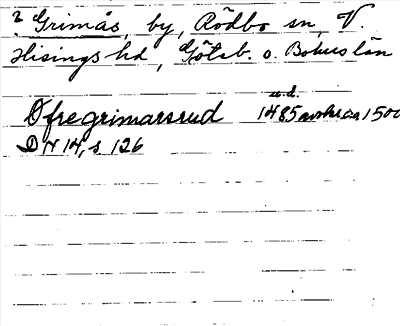 ? Grimås, by, Rödbo sn, V.
Hisings hd, Götab. o. Bohuslän
u.d.
Öfregrimarsrud 1485 avskr ca 1500
DN 14, s 126